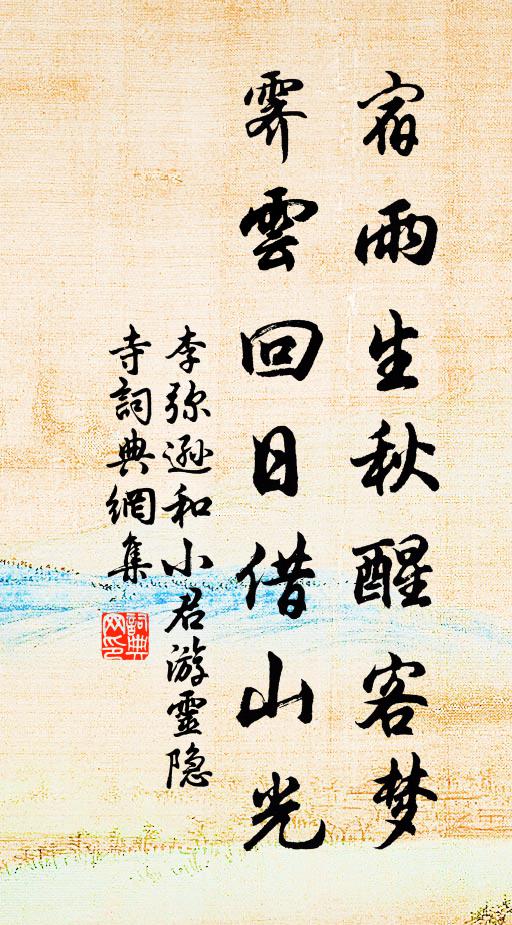 宿雨生秋醒客梦
霁雲回日借山光
李弥遜和小君游靈隐
寺詞典網集
詞典
网印